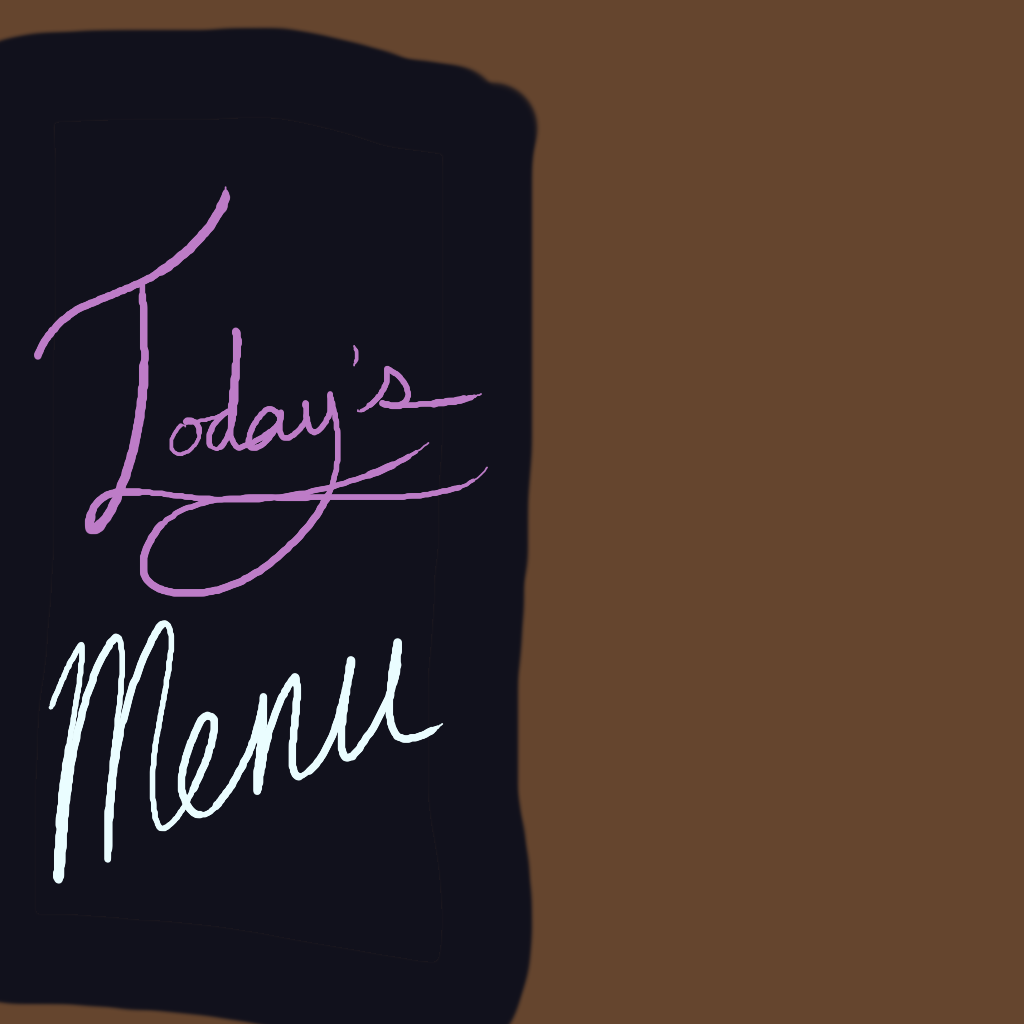 Today's
Menu